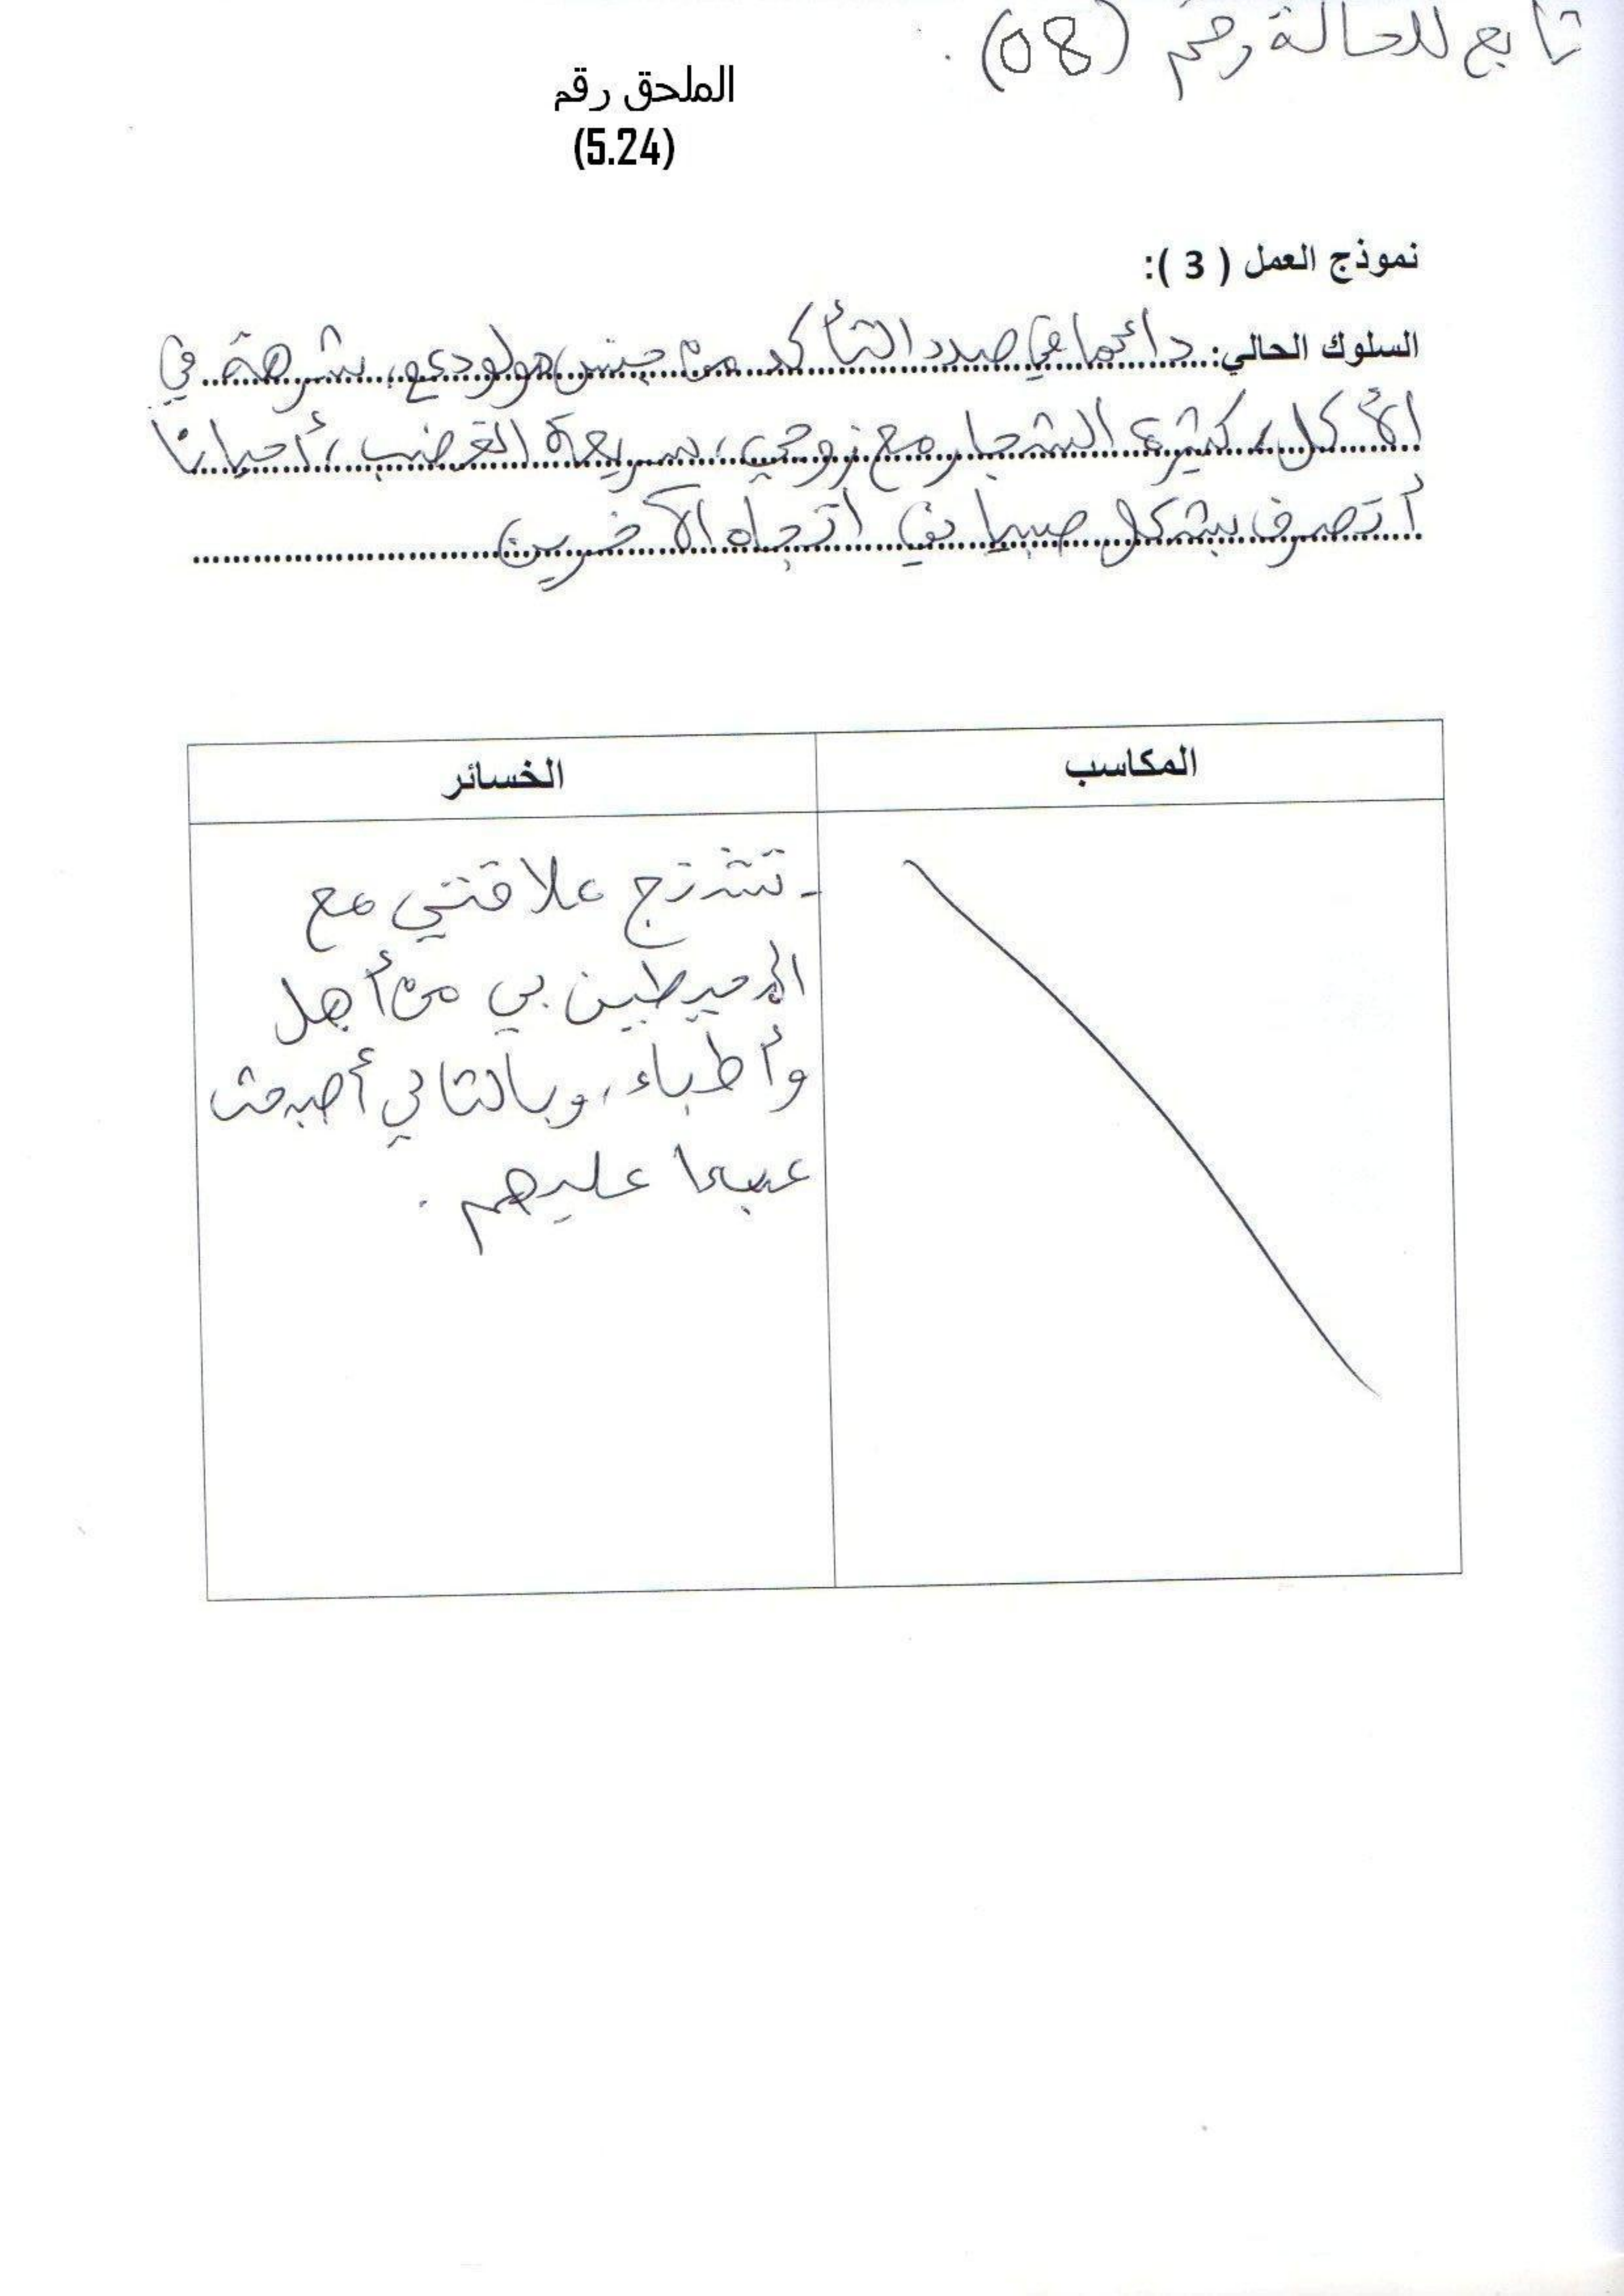 تابع للحالة رقم (08).
الملحق رقم
(5.24)
نموذج العمل ( 3 ):
السلوك الحالي: دائما في صدد التأكد من جنس مولودي، شرهة في
الأكل، كثيرة الشجار مع زوجي، سريعة الغضب، أحيانا
أتصرف بشكل صبياني اتجاه الآخرين
المكاسب
الخسائر
- تشنج علاقتي مع
المحيطين بي من أهل
وأطباء، وبالتالي أصبحت
عبءا عليهم.